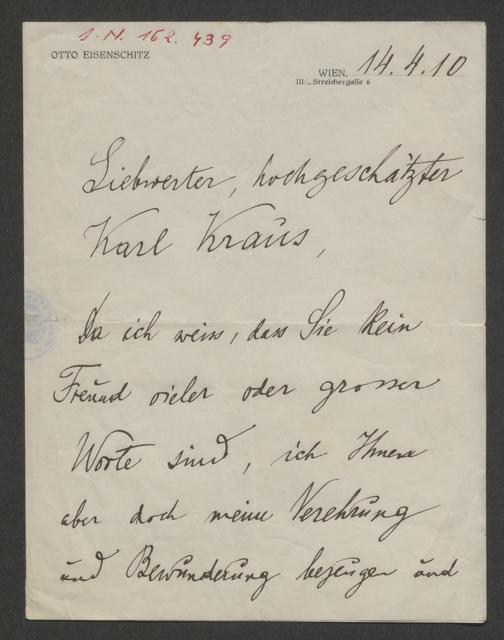 I.N. 162.439
OTTO EISENSCHITZ
WIEN, 14.4.10
III/₁, Streichergasse 6
Liebwerter, hochgeschätzter
Karl Kraus,
Da ich weiss, dass Sie kein
Freund vieler oder grosser
Worte sind, ich Ihnen
aber doch meine Verehrung
und Bewunderung bezeugen und